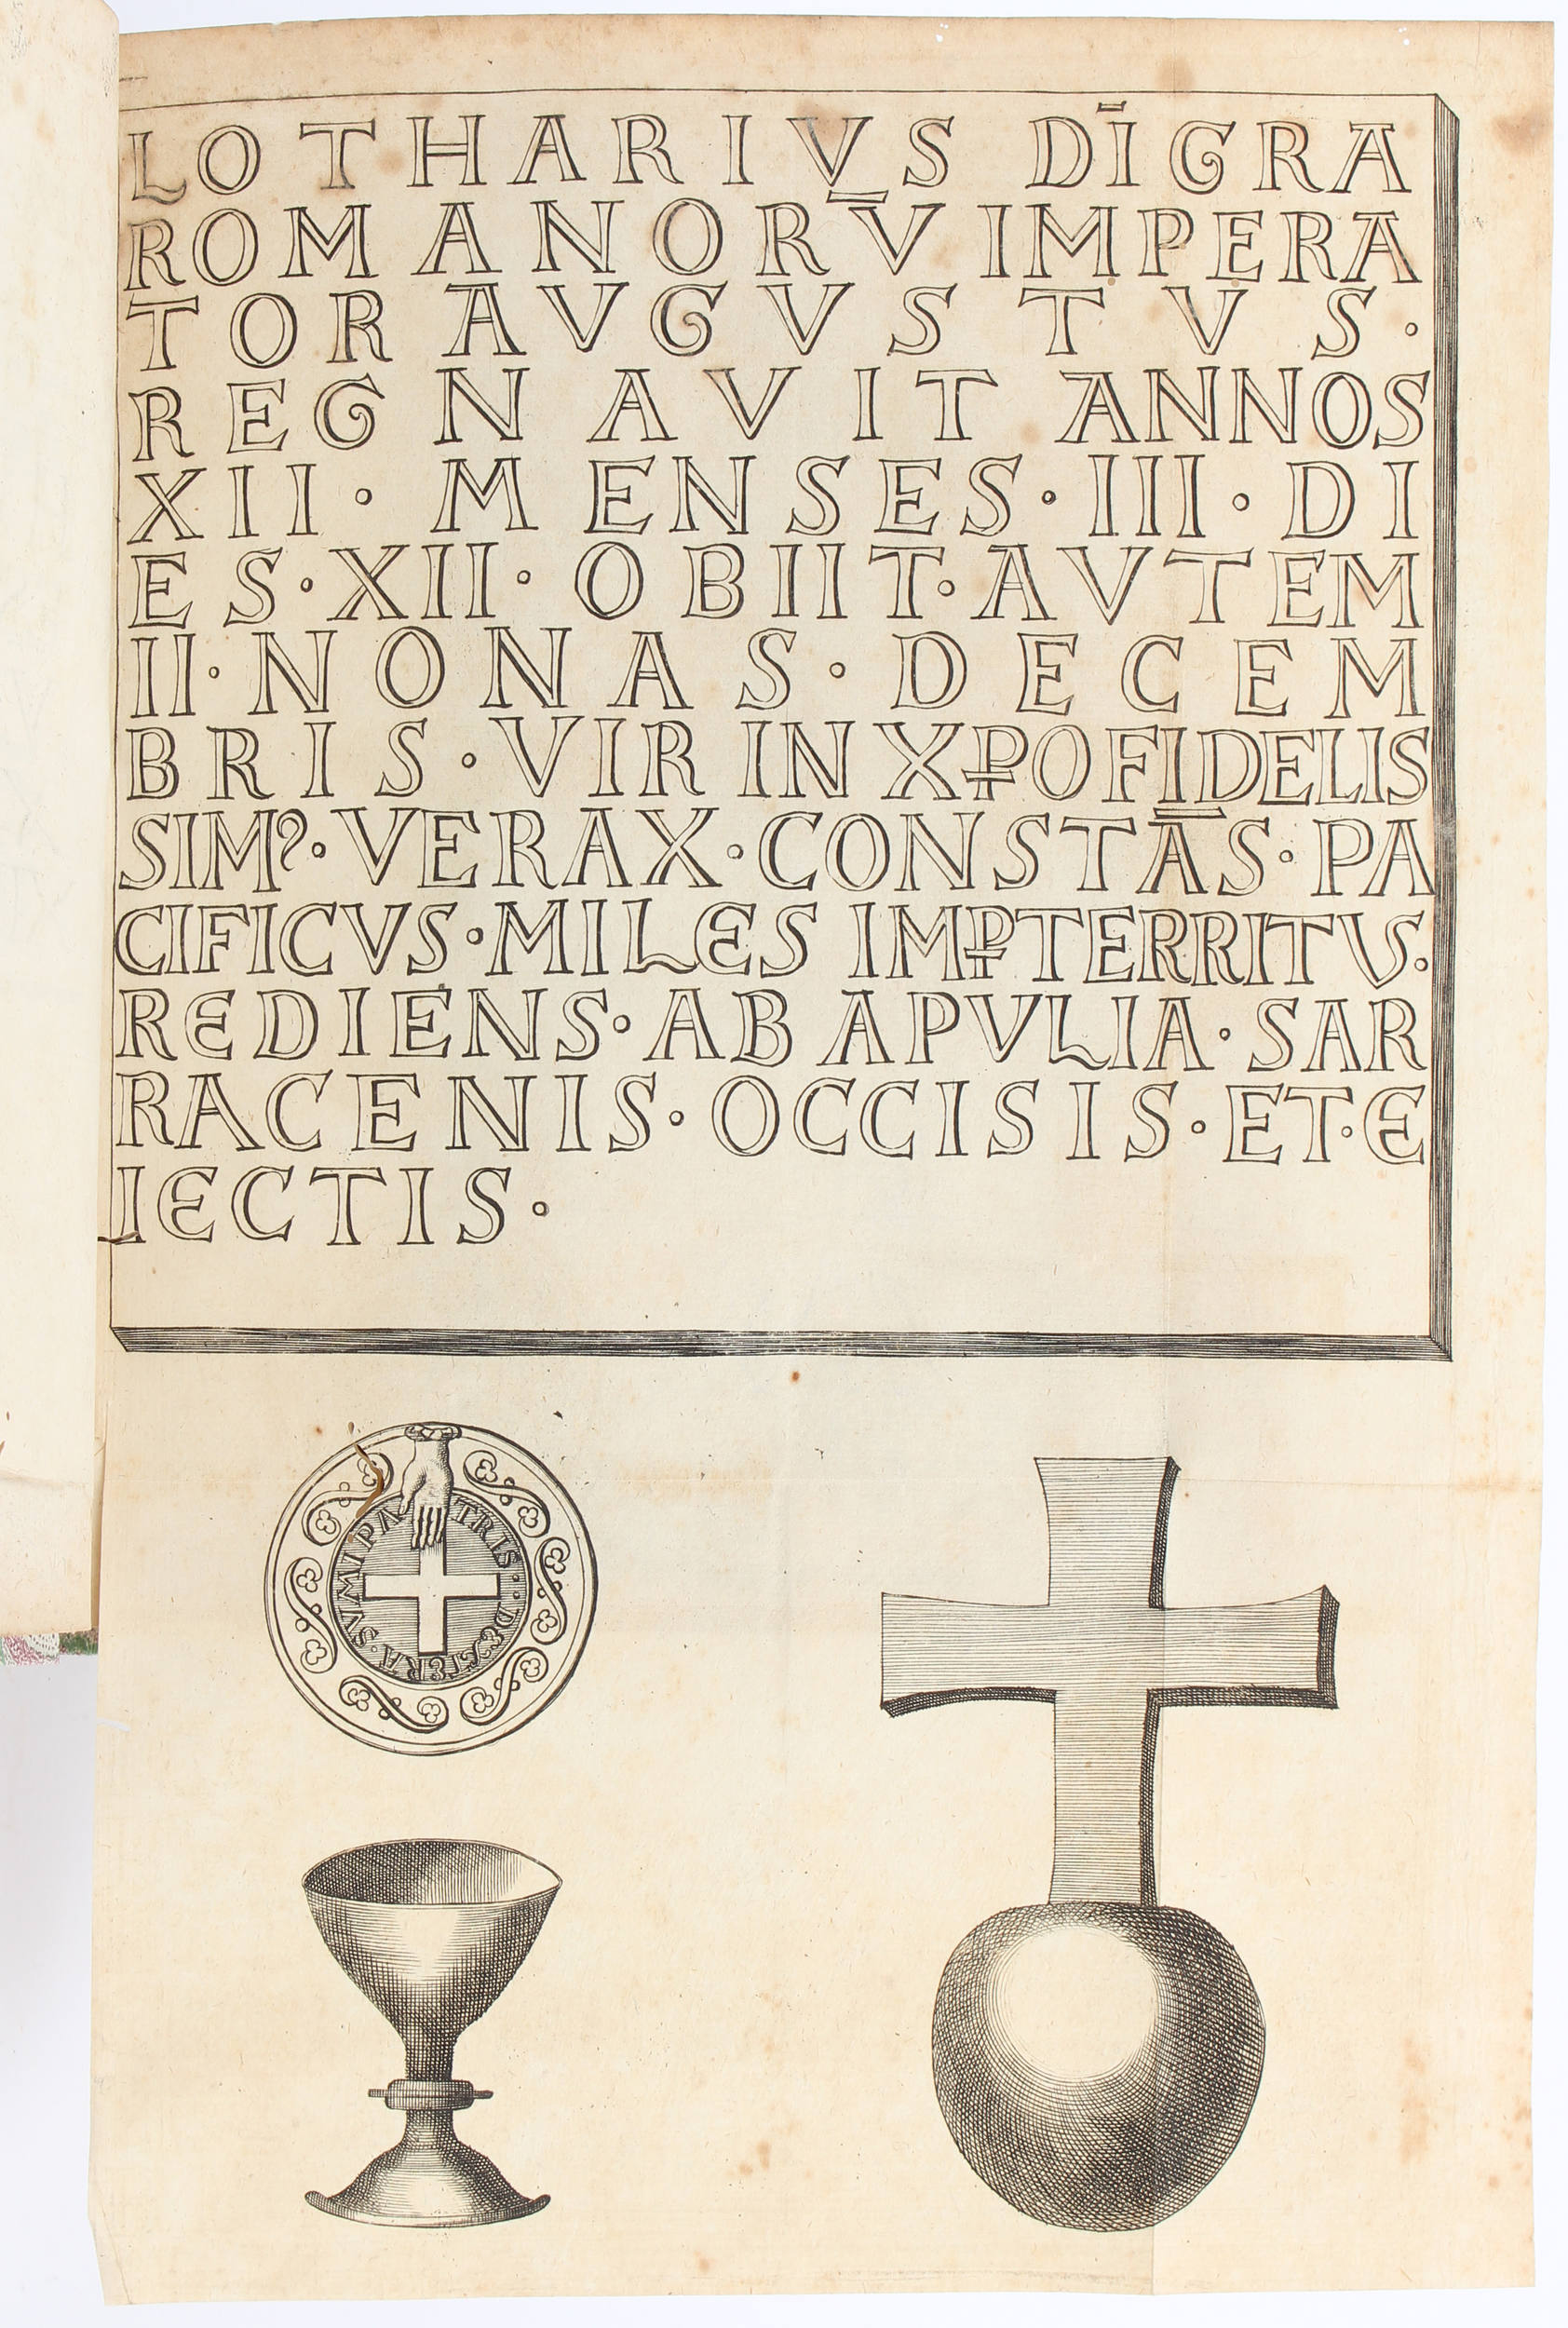 LOTHARIVS DĪ GRA
ROMANORV̄ IMPERA
TOR AVGVSTVS·
REGNAVIT ANNOS
XII· MENSES· III· DI
ES· XII· OBIIT· AVTEM
II· NONAS· DECEM
BRIS· VIR IN XP̱O FIDELIS
SIMꝰ· VERAX· CONSTĀS· PA
CIFICVS· MILES IMP̱TERRITVS·
REDIENS· AB APVLIA· SAR
RACENIS· OCCISIS· ET· E
IECTIS·
DEXTERA· SVMI PATRIS·